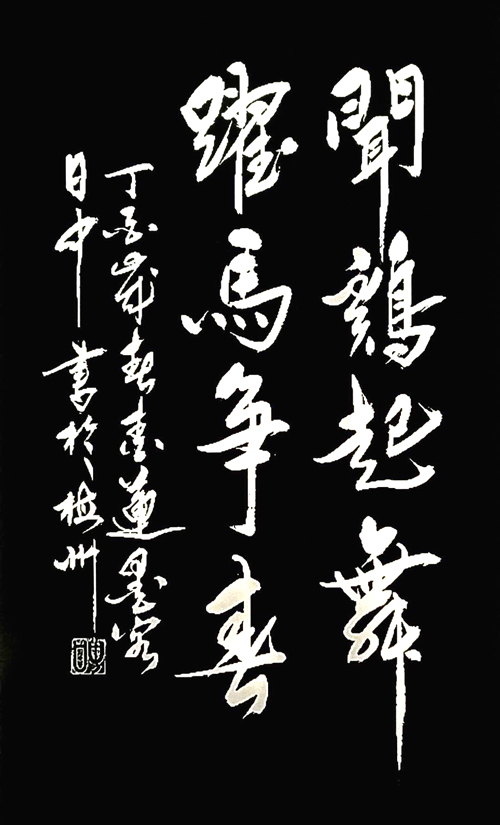 聞鷄起舞
躍馬争春
丁酉歲春愛蓮墨客
日中書於梅州